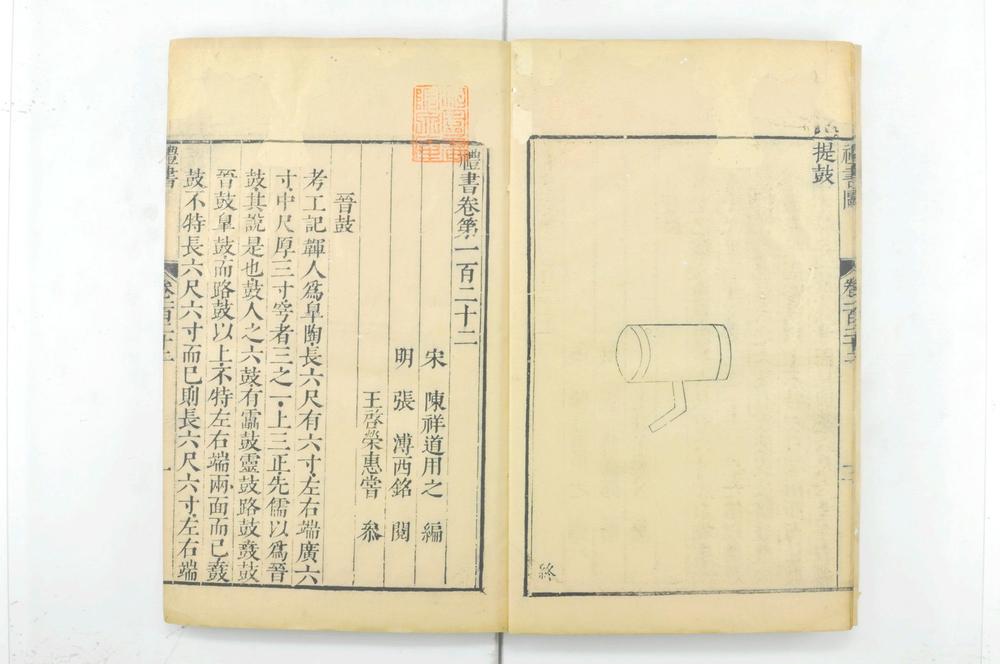 禮書圖
卷一百二十二
提鼓
終
禮書卷第一百二十二
宋 陳祥道用之 編
明 張 溥西銘 閱
王啓榮惠嘗 叅
晉鼓
考工記韗人爲皐陶長六尺有六寸左右端廣六
寸中尺厚三寸穹者三之一上三正先儒以爲晉
鼓其說是也鼓人之六鼓有靁鼓靈鼓路鼓鼖鼓
晉鼓皐鼓而路鼓以上不特左右端兩面而已鼖
鼓不特長六尺六寸而已則長六尺六寸左右端
禮書
卷一百二十二
一